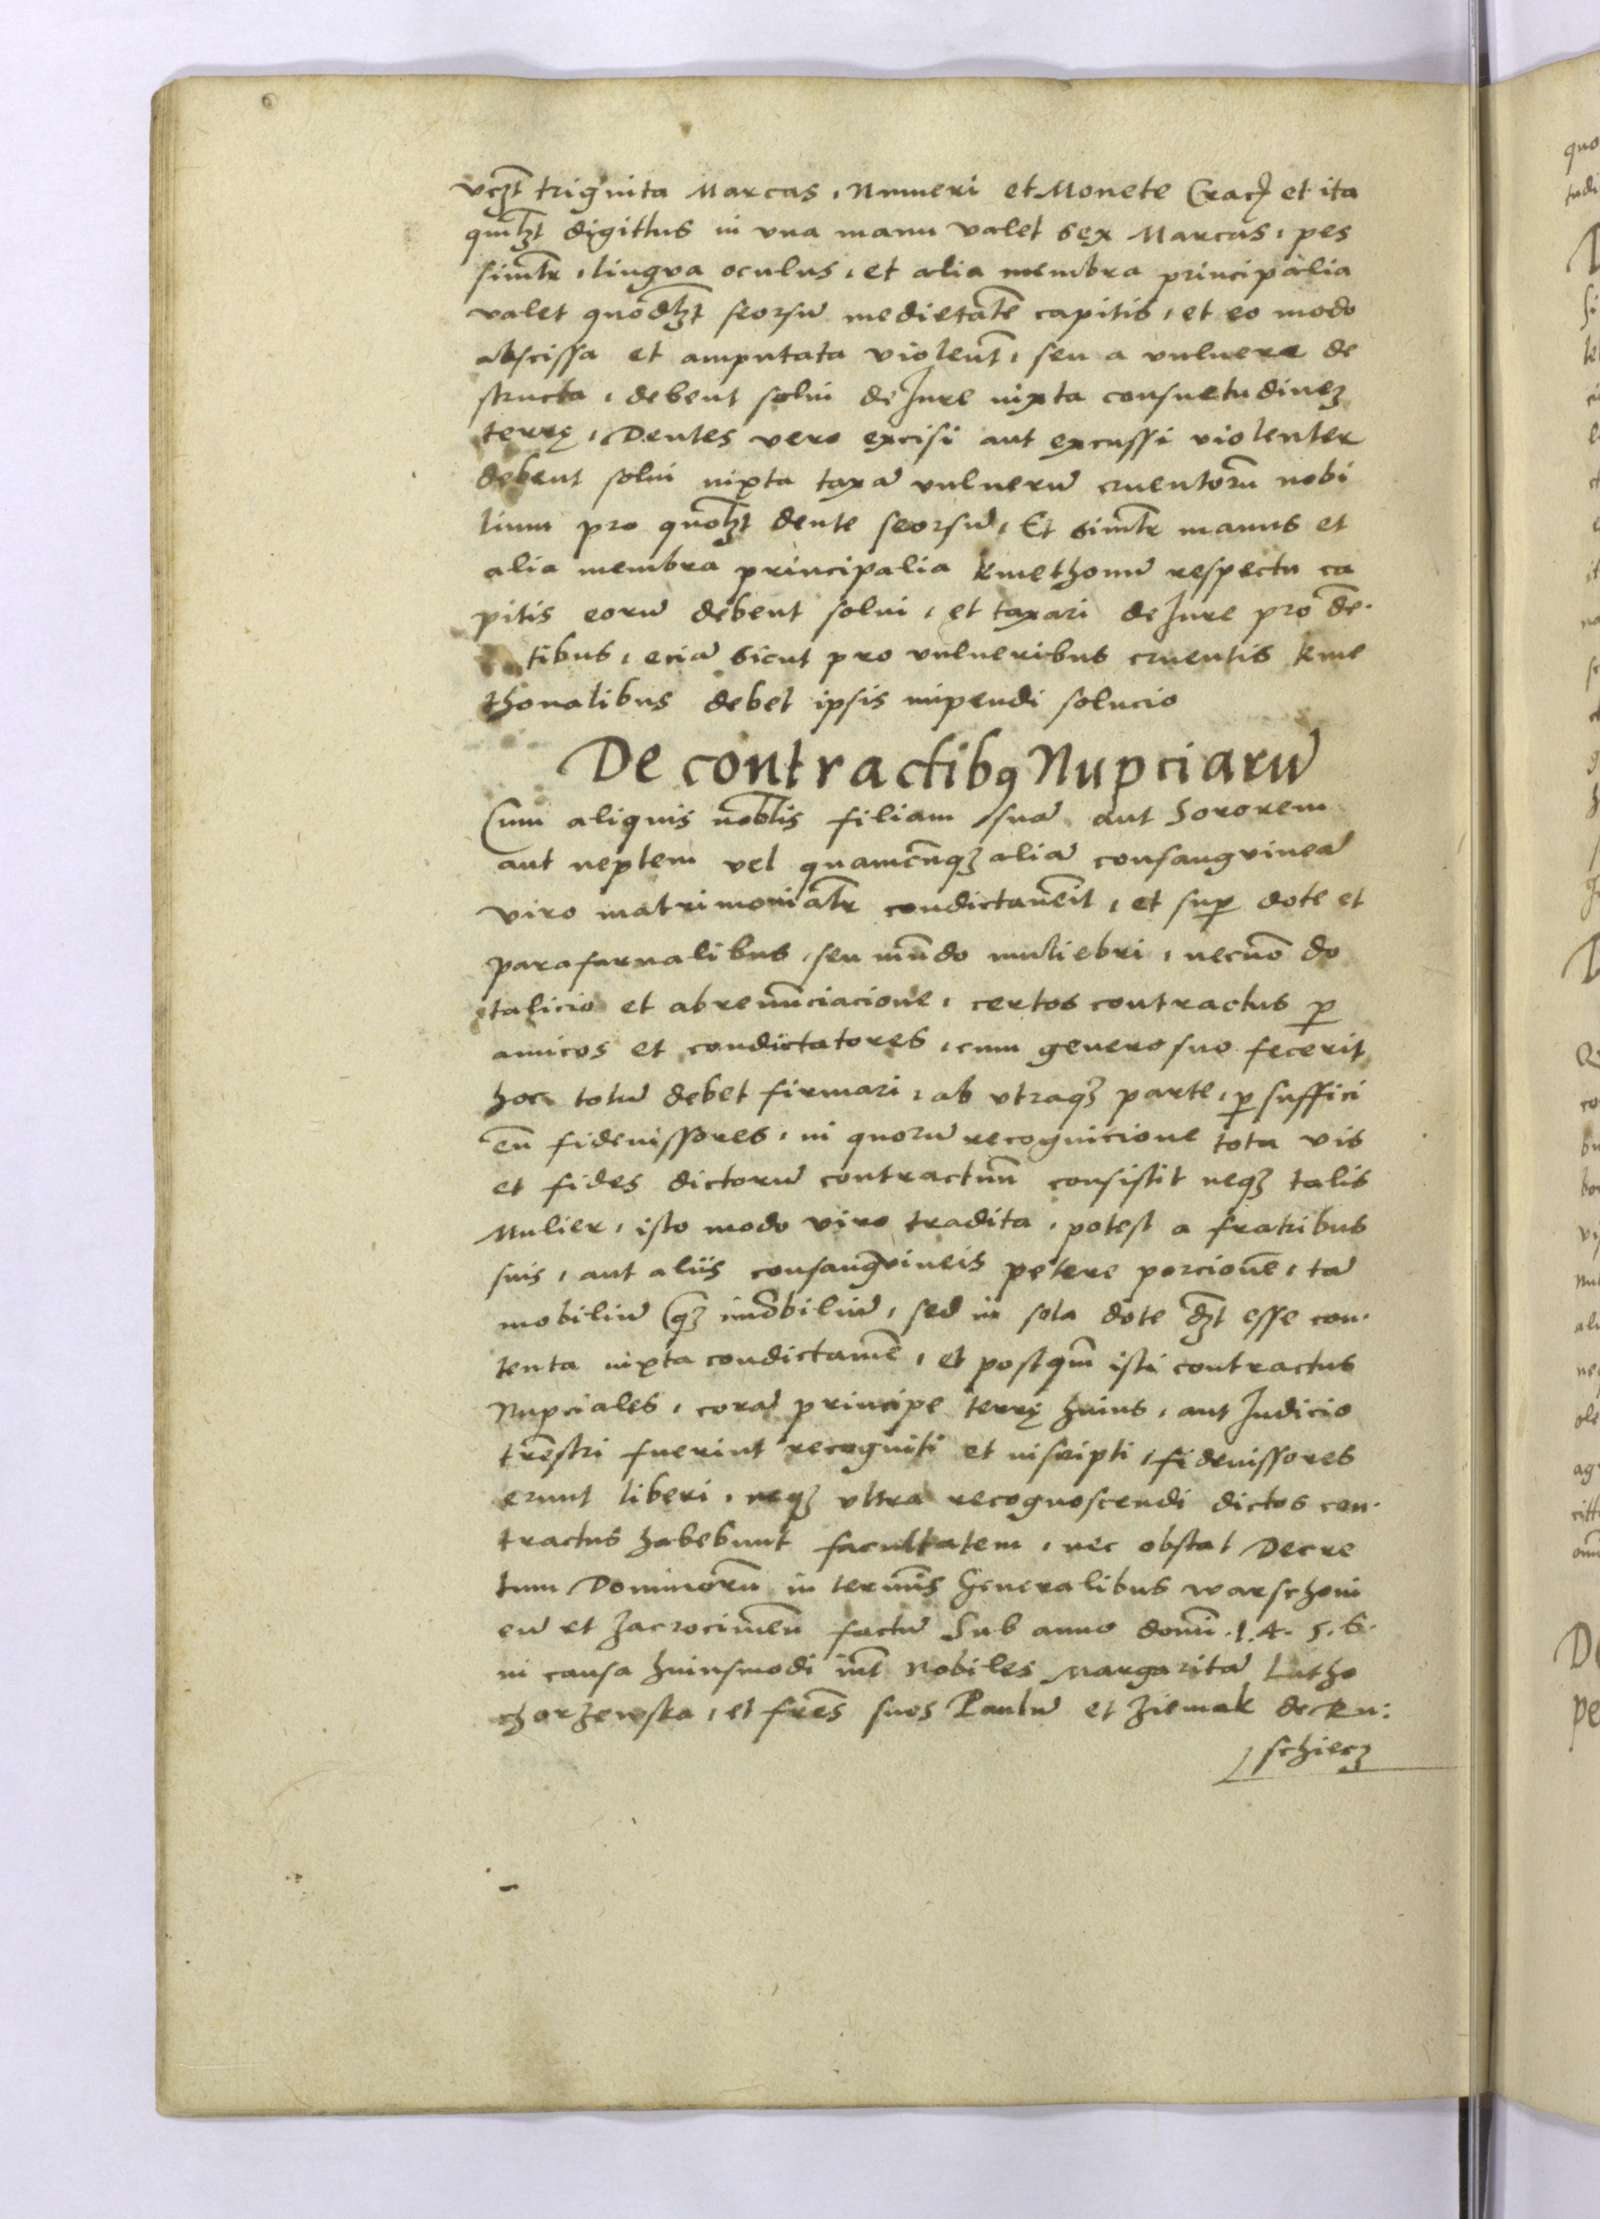 vcꝫt triguita Marcas, Numeri et Monete Cracꝭ et ita
quilꝫt digittus in vna manu valet sex Marcas, pes
similr̄, lingva oculus, et alia membra principalia
valet quodlꝫt seorsū medietatē capitis, et eo modo
abscissa et amputata violent̄, seu a vulnere de
structa, debent solui de Jure iuxta consuetudineꝫ
terrę, Dentes vero excisi aut excussi violenter
debent solui iuxta taxā vulnerū cruentorū nobi
lium pro quolꝫt dente seorsū, Et similr̄ manus et
alia membra principalia kmethonū respectu ca
pitis eorū debent solui, et taxari de Jure pro dē
tibus, eciā sicut pro vulneribus cruentis kme
thonalibus debet ipsis inpendi solucio
De contractibꝰ Nupciarū
Cum aliquis nobl̄is filiam suā aut Sororem
aut neptem vel quamcūqꝫ aliā consangvineā
viro matrimonialr̄ condictauerit, et suꝑ dote et
parafarnalibus, seu mūdo muliebri, necnō do
talicio et abrenūciacione, certos contractus ꝑ
amicos et condictatores, cum genero suo fecerit
hoc totū debet firmari, ab vtraqꝫ parte, ꝑ suffici
eñ fideiussores, in quorū recognicione tota vis
et fides dictorū contractuū consistit neqꝫ talis
Mulier, isto modo viro tradita, potest a fratribus
suis, aut aliis consangvineis petere porcionē, tā
mobiliū qꝫ imōbiliū, sed in sola dote dꝫt esse con-
tenta iuxta condictamē, et postqm̄ isti contractus
Nupciales, corā principe terrę huius, aut Judicio
trēstri fuerint recogniti et inscripti, fideiussores
erunt liberi, neqꝫ vltra recognoscendi dictos con-
tractus habebunt facultatem, nec obstat Decre
tum Dominorū in termīs Generalibus warschoui
eñ et Zacrocimeñ factū Sub anno domi .1.4.5.6.
in causa huiusmodi int̄ Nobiles Margaritā Lutho
chorzewska, et frēs suos Paulū et Ziemak de Ru:
schiecz